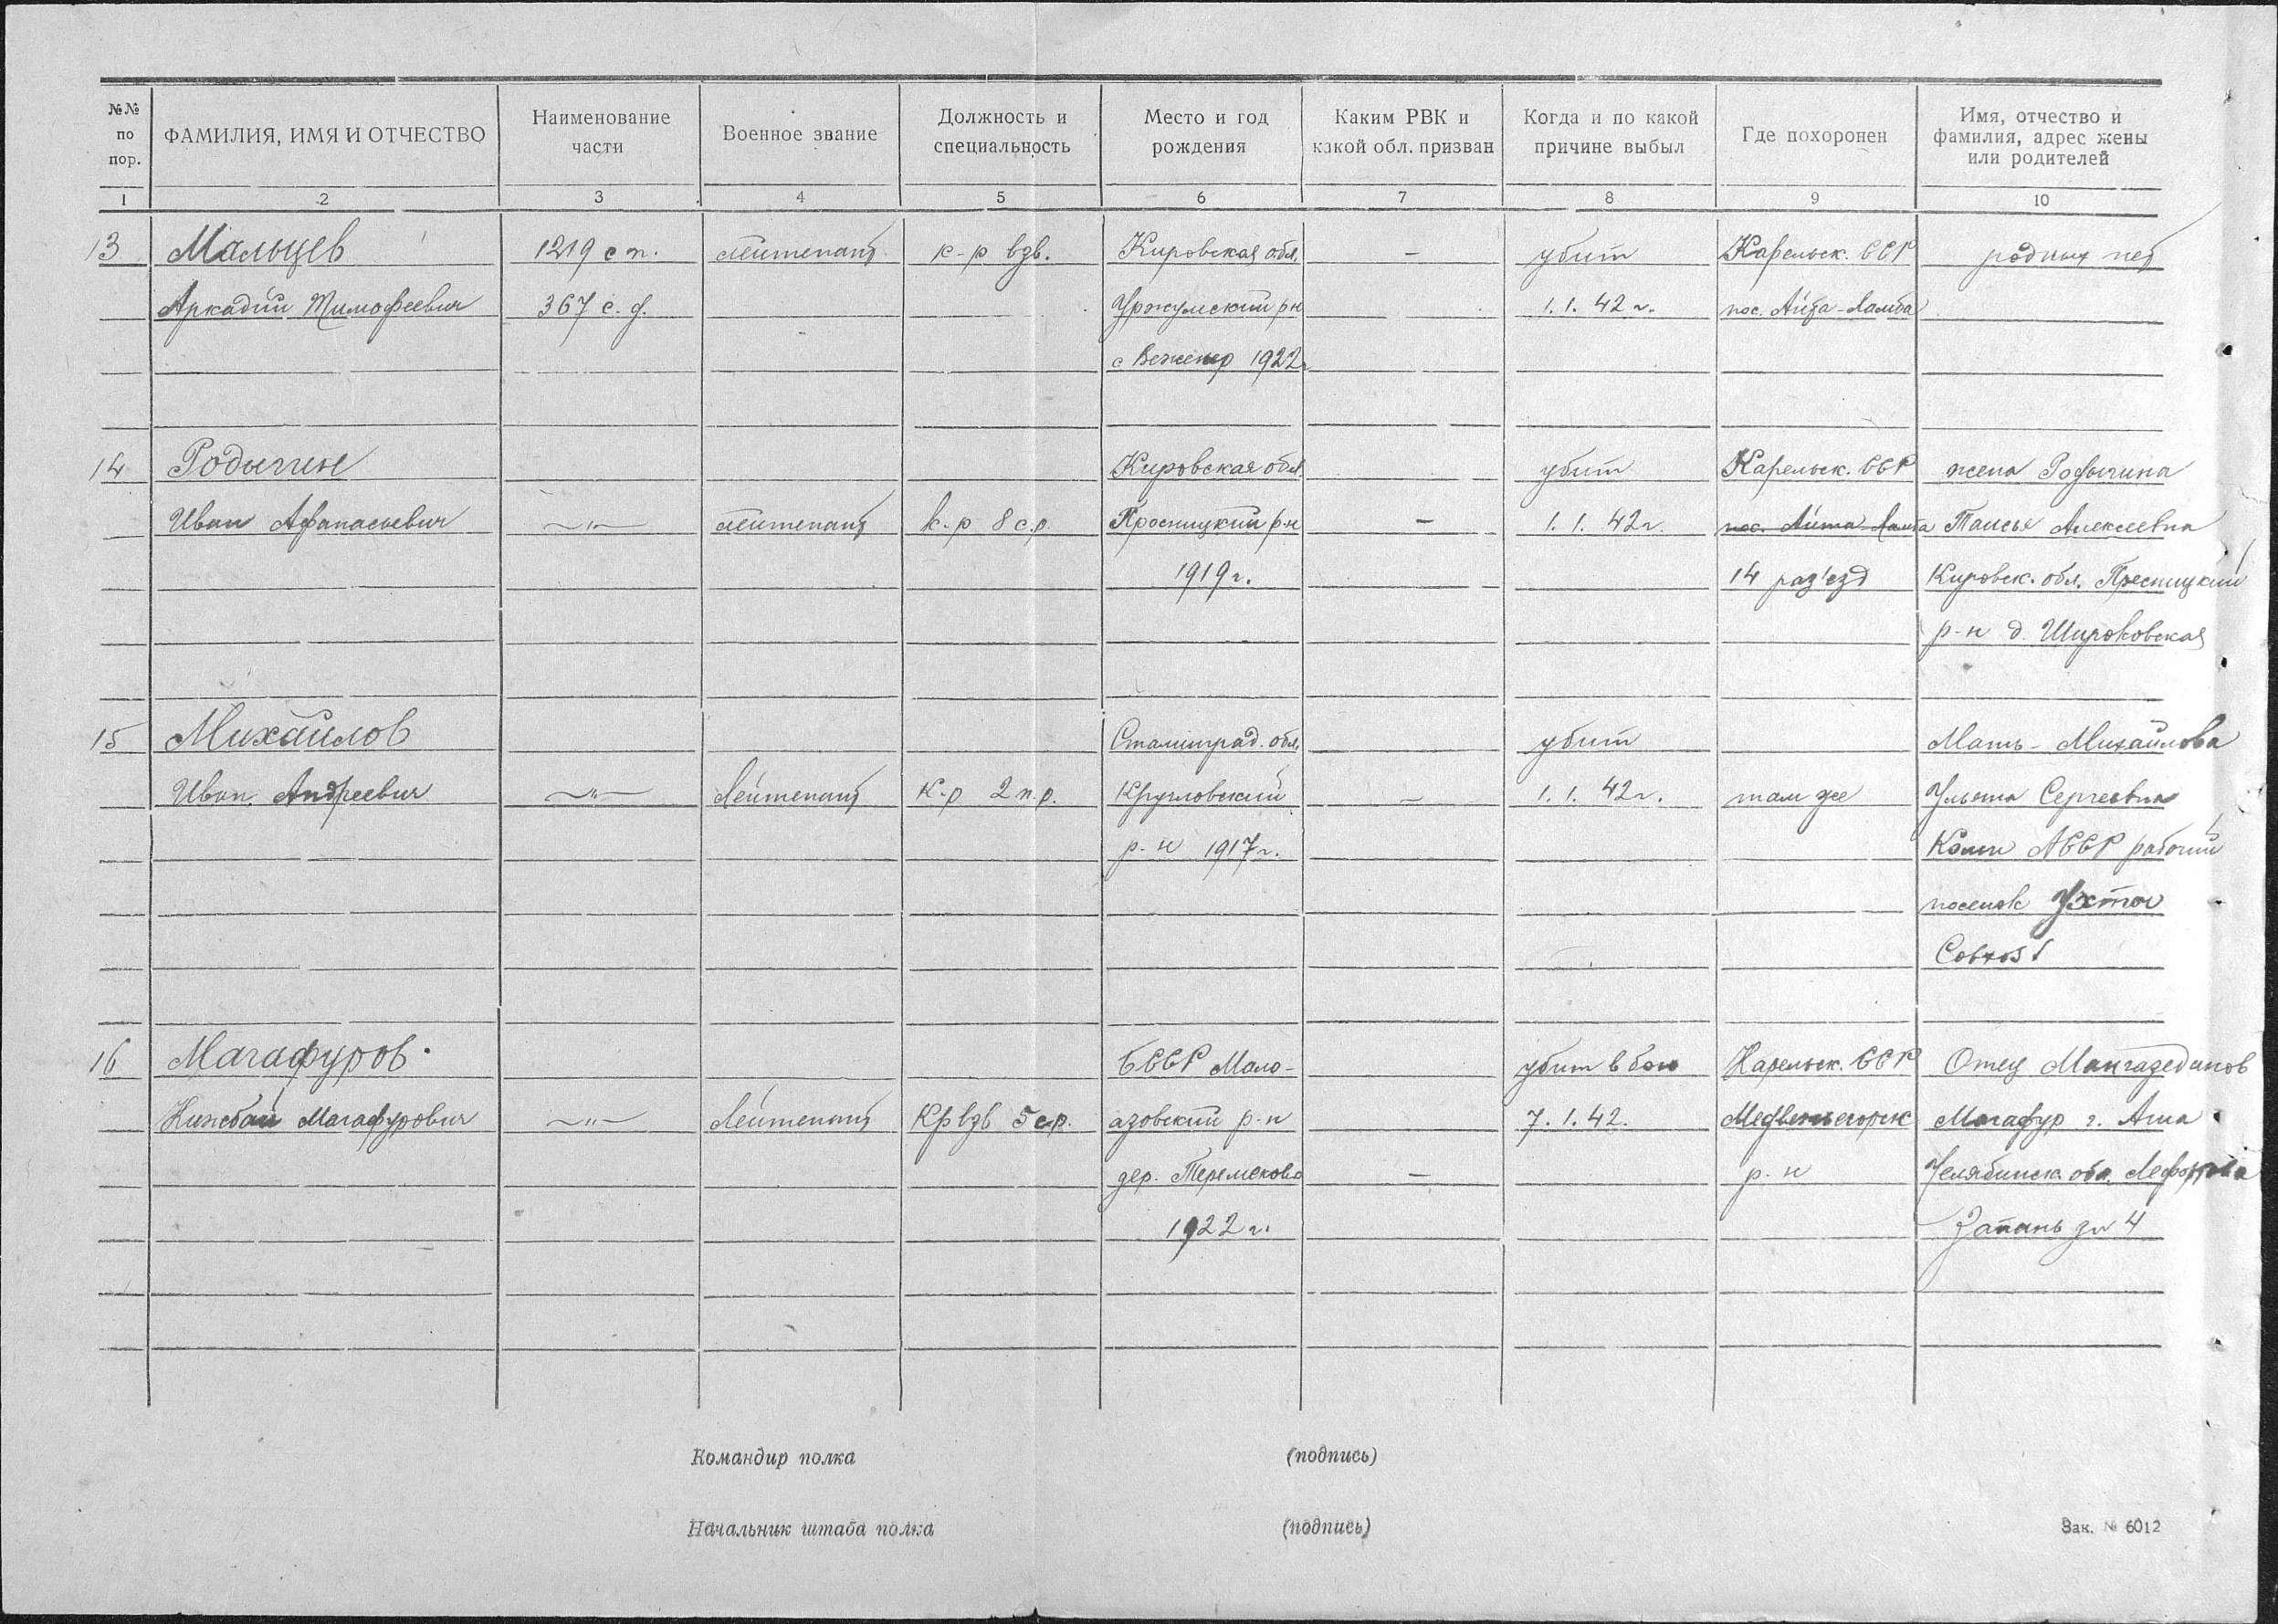 №№ по пор.
ФАМИЛИЯ, ИМЯ И ОТЧЕСТВО
Наименование части
Военное звание
Должность и специальность
Место и год рождения
Каким РВК и какой обл. призван
Когда и по какой причине выбыл
Где похоронен
Имя, отчество и фамилия, адрес жены или родителей
1 2 3 4 5 6 7 8 9 10
13 Мальцев 1219 с п. лейтенант к-р взв. Кировская обл. – убит Карельск. ССР родных нет
Аркадий Тимофеевич 367 с. д. Уржумский р-н 1. 1. 42 г. пос. Айта-Ламба
с 1922г
14 Родыгин Кировская обл. убит Карельск. ССР жена Родыгина
Иван Афанасьевич —"— лейтенант к-р 8 с.р. Просницкий р-н – 1. 1. 42 г. пос. Айта Ламба Таисья Алексеевна
1919 г. 14 раз'езд Кировск. обл. Просницкий
р-н д. Широковская
15 Михайлов Сталинград. обл. убит Мать - Михайлова
Иван Андреевич —"— Лейтенант к-р 2 п.р. Кругловский – 1. 1. 42 г. там же Ульяна Сергеевна
р-н 1917 г. Коми АССР рабочий
поселок Ухта
Совхоз 1
16 Магафуров БССР Мало- убит в бою Карельск. ССР Отец
Магафурович —"— Лейтенант Кр взв 5 ср. азовский р-н 7. 1. 42. Медвежьегорск Магафур г. Аша
дер. Термеково – р-н Челябинск. обл.
1922 г. Запань 4
Командир полка (подпись)
Начальник штаба полка (подпись)
Зак. № 6012